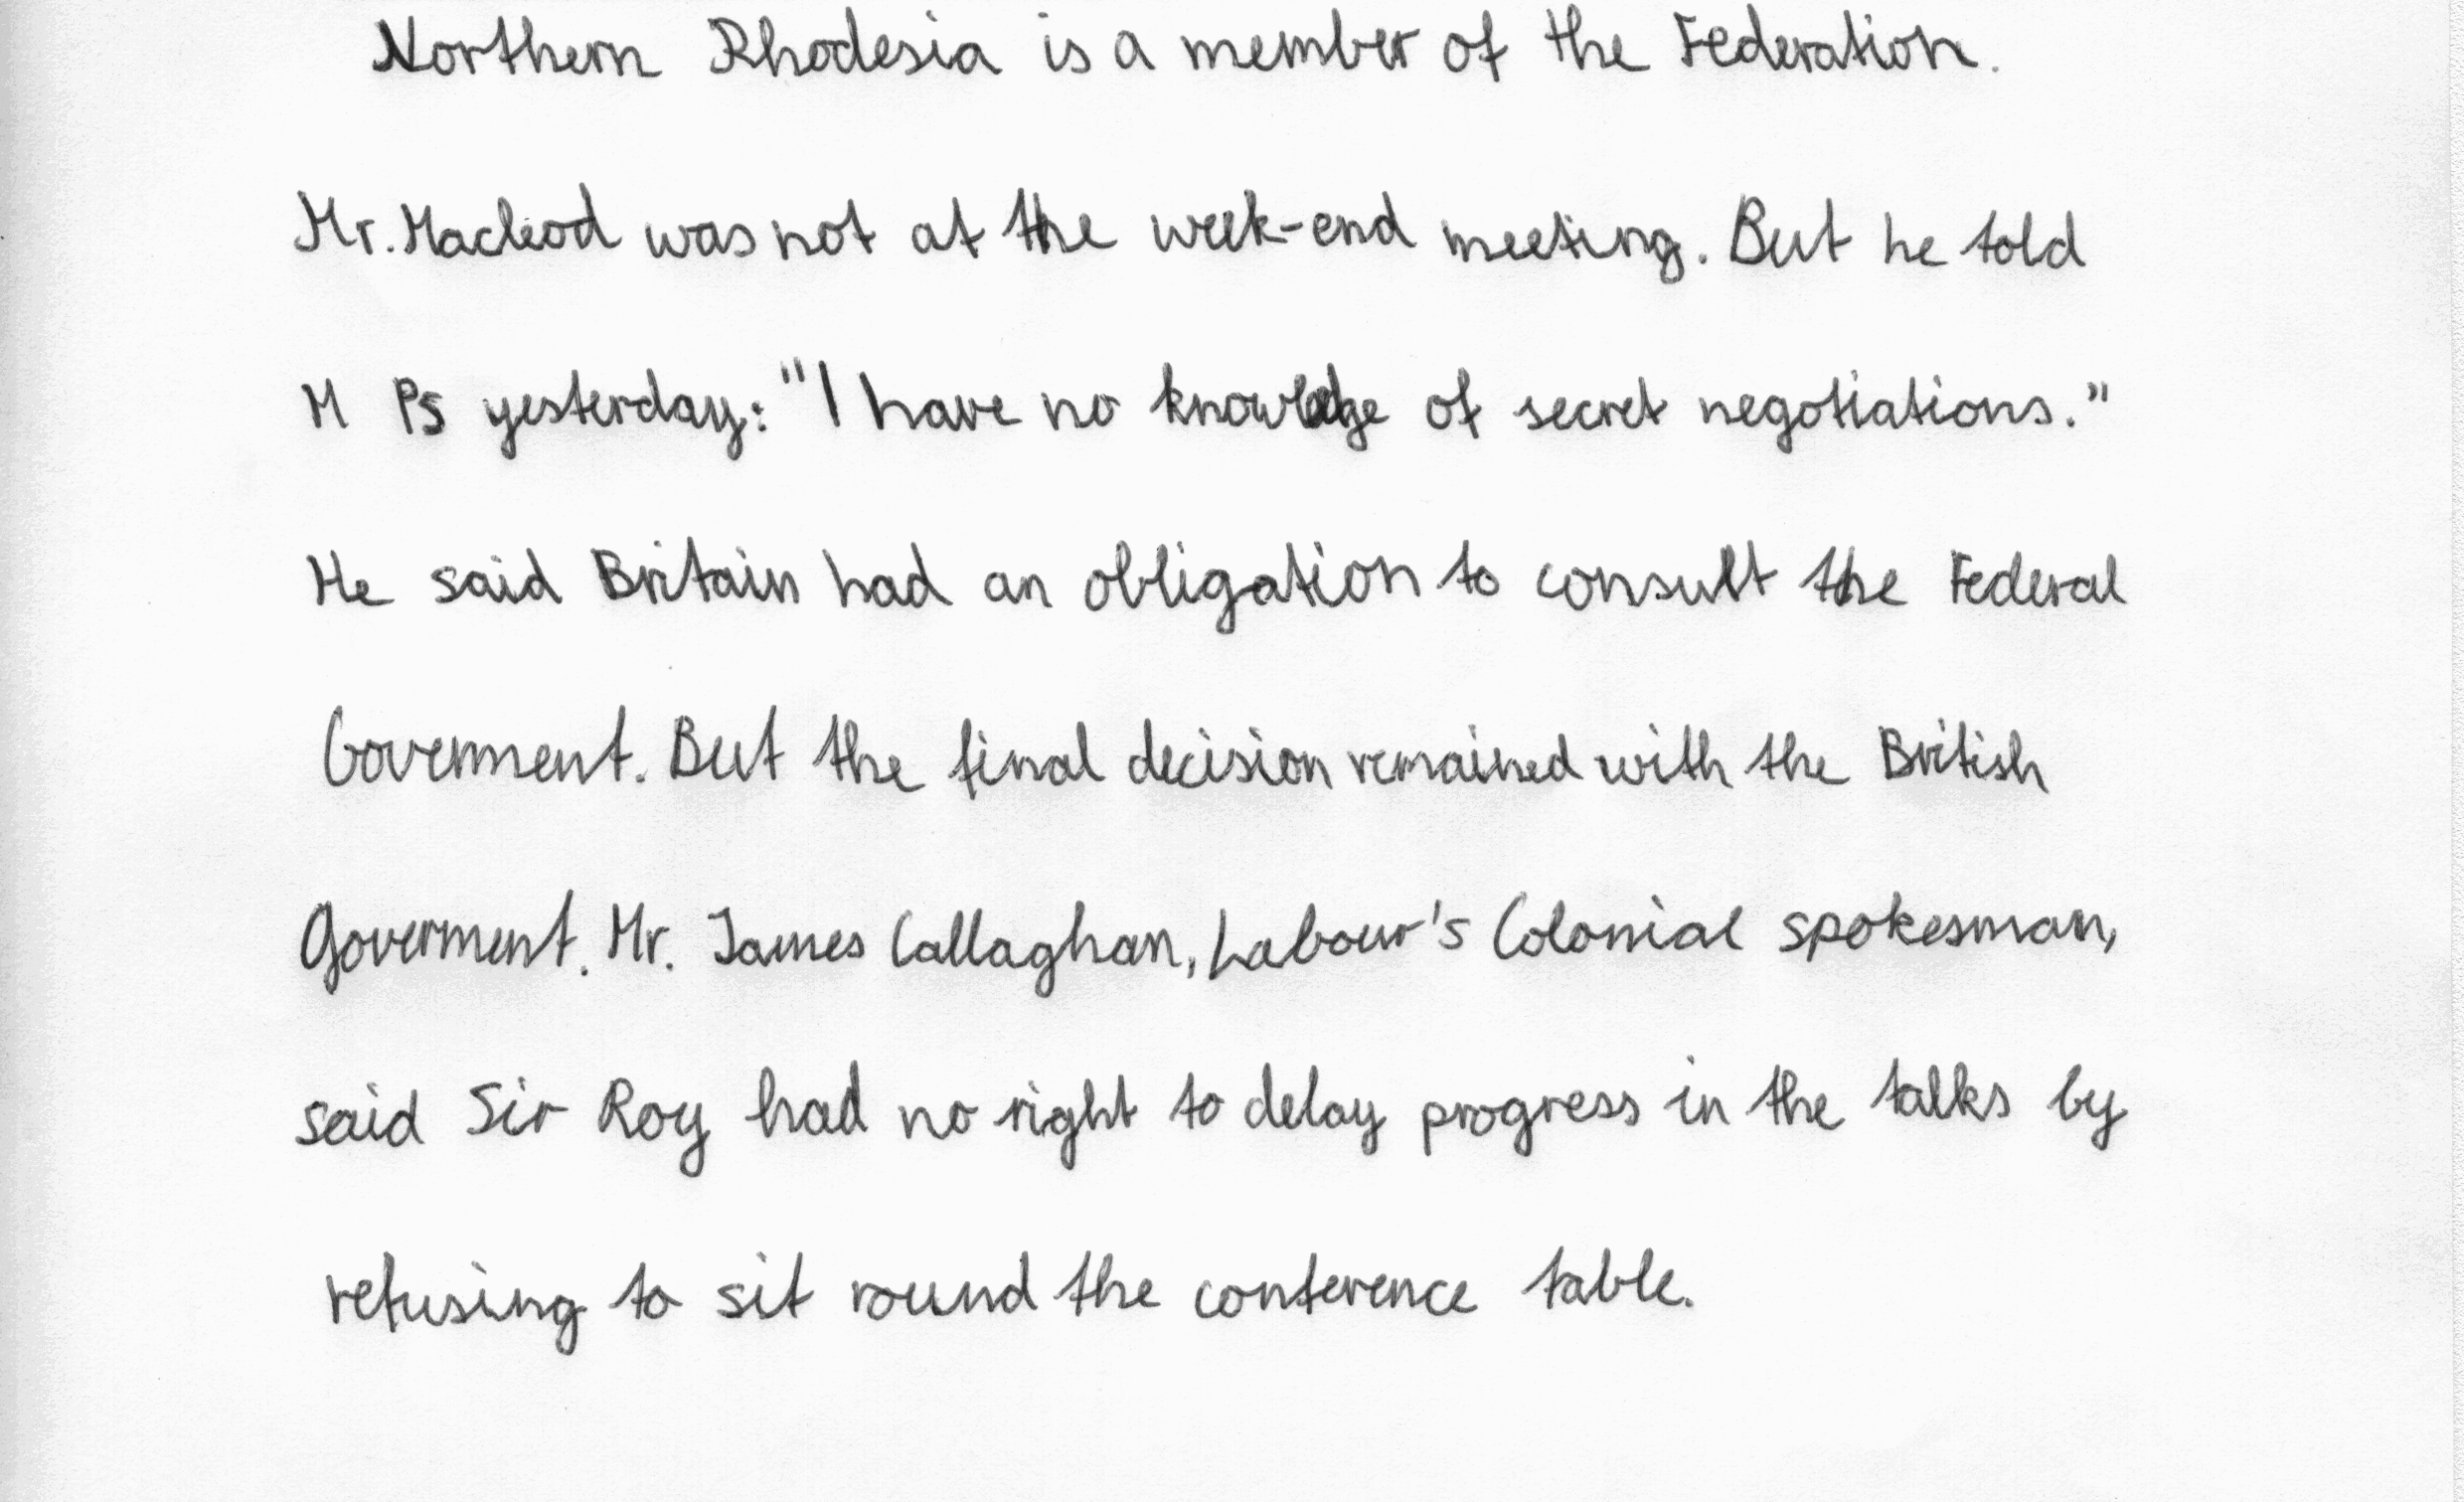 Northern Rhodesia is a member of the Federation.
Mr. Macleod was not at the week-end meeting. But he told
M Ps yesterday: "I have no knowledge of secret negotiations."
He said Britain had an obligation to consult the Federal
Government. But the final decision remained with the British
Goverment. Mr. James Callaghan, Labour's Colonial spokesman,
said Sir Roy had no right to delay progress in the talks by
refusing to sit round the conference table.